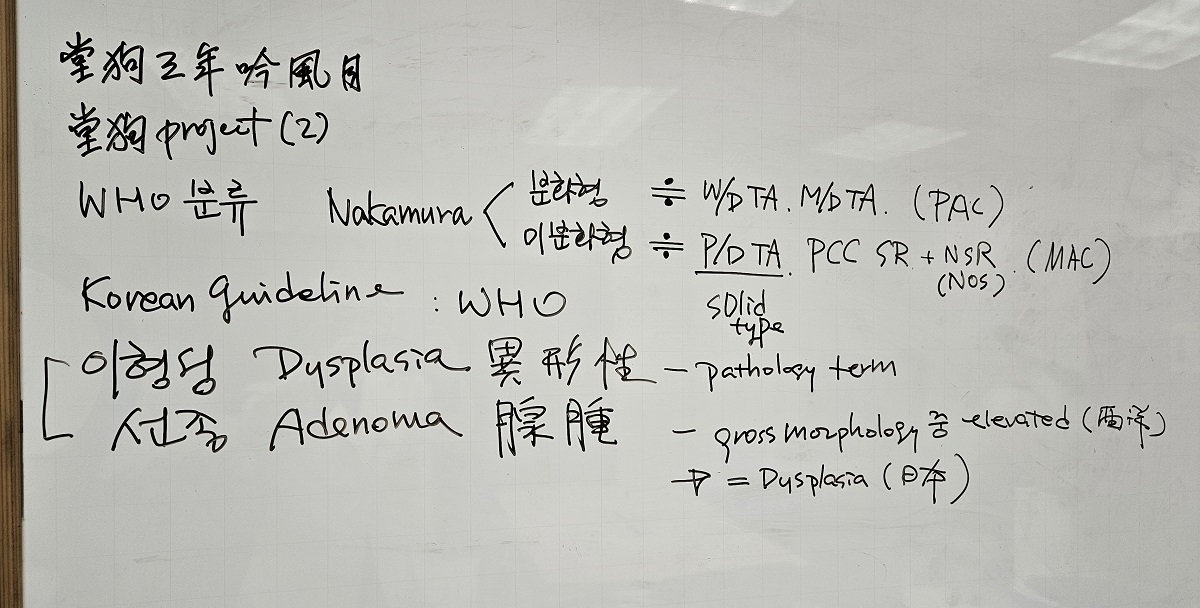 堂狗三年吟風月
堂狗 project (2)
WHO 분류 Nakamura < 분화형 ≒ W/D TA. M/D TA. (PAC)
미분화형 ≒ P/D TA. PCC SR + NSR. (MAC)
(NOS)
solid
type
Korean guideline : WHO
이형성 Dysplasia 異形性 - pathology term
선종 Adenoma 腺腫 - gross morphology 중 elevated (西洋)
→ = Dysplasia (日本)